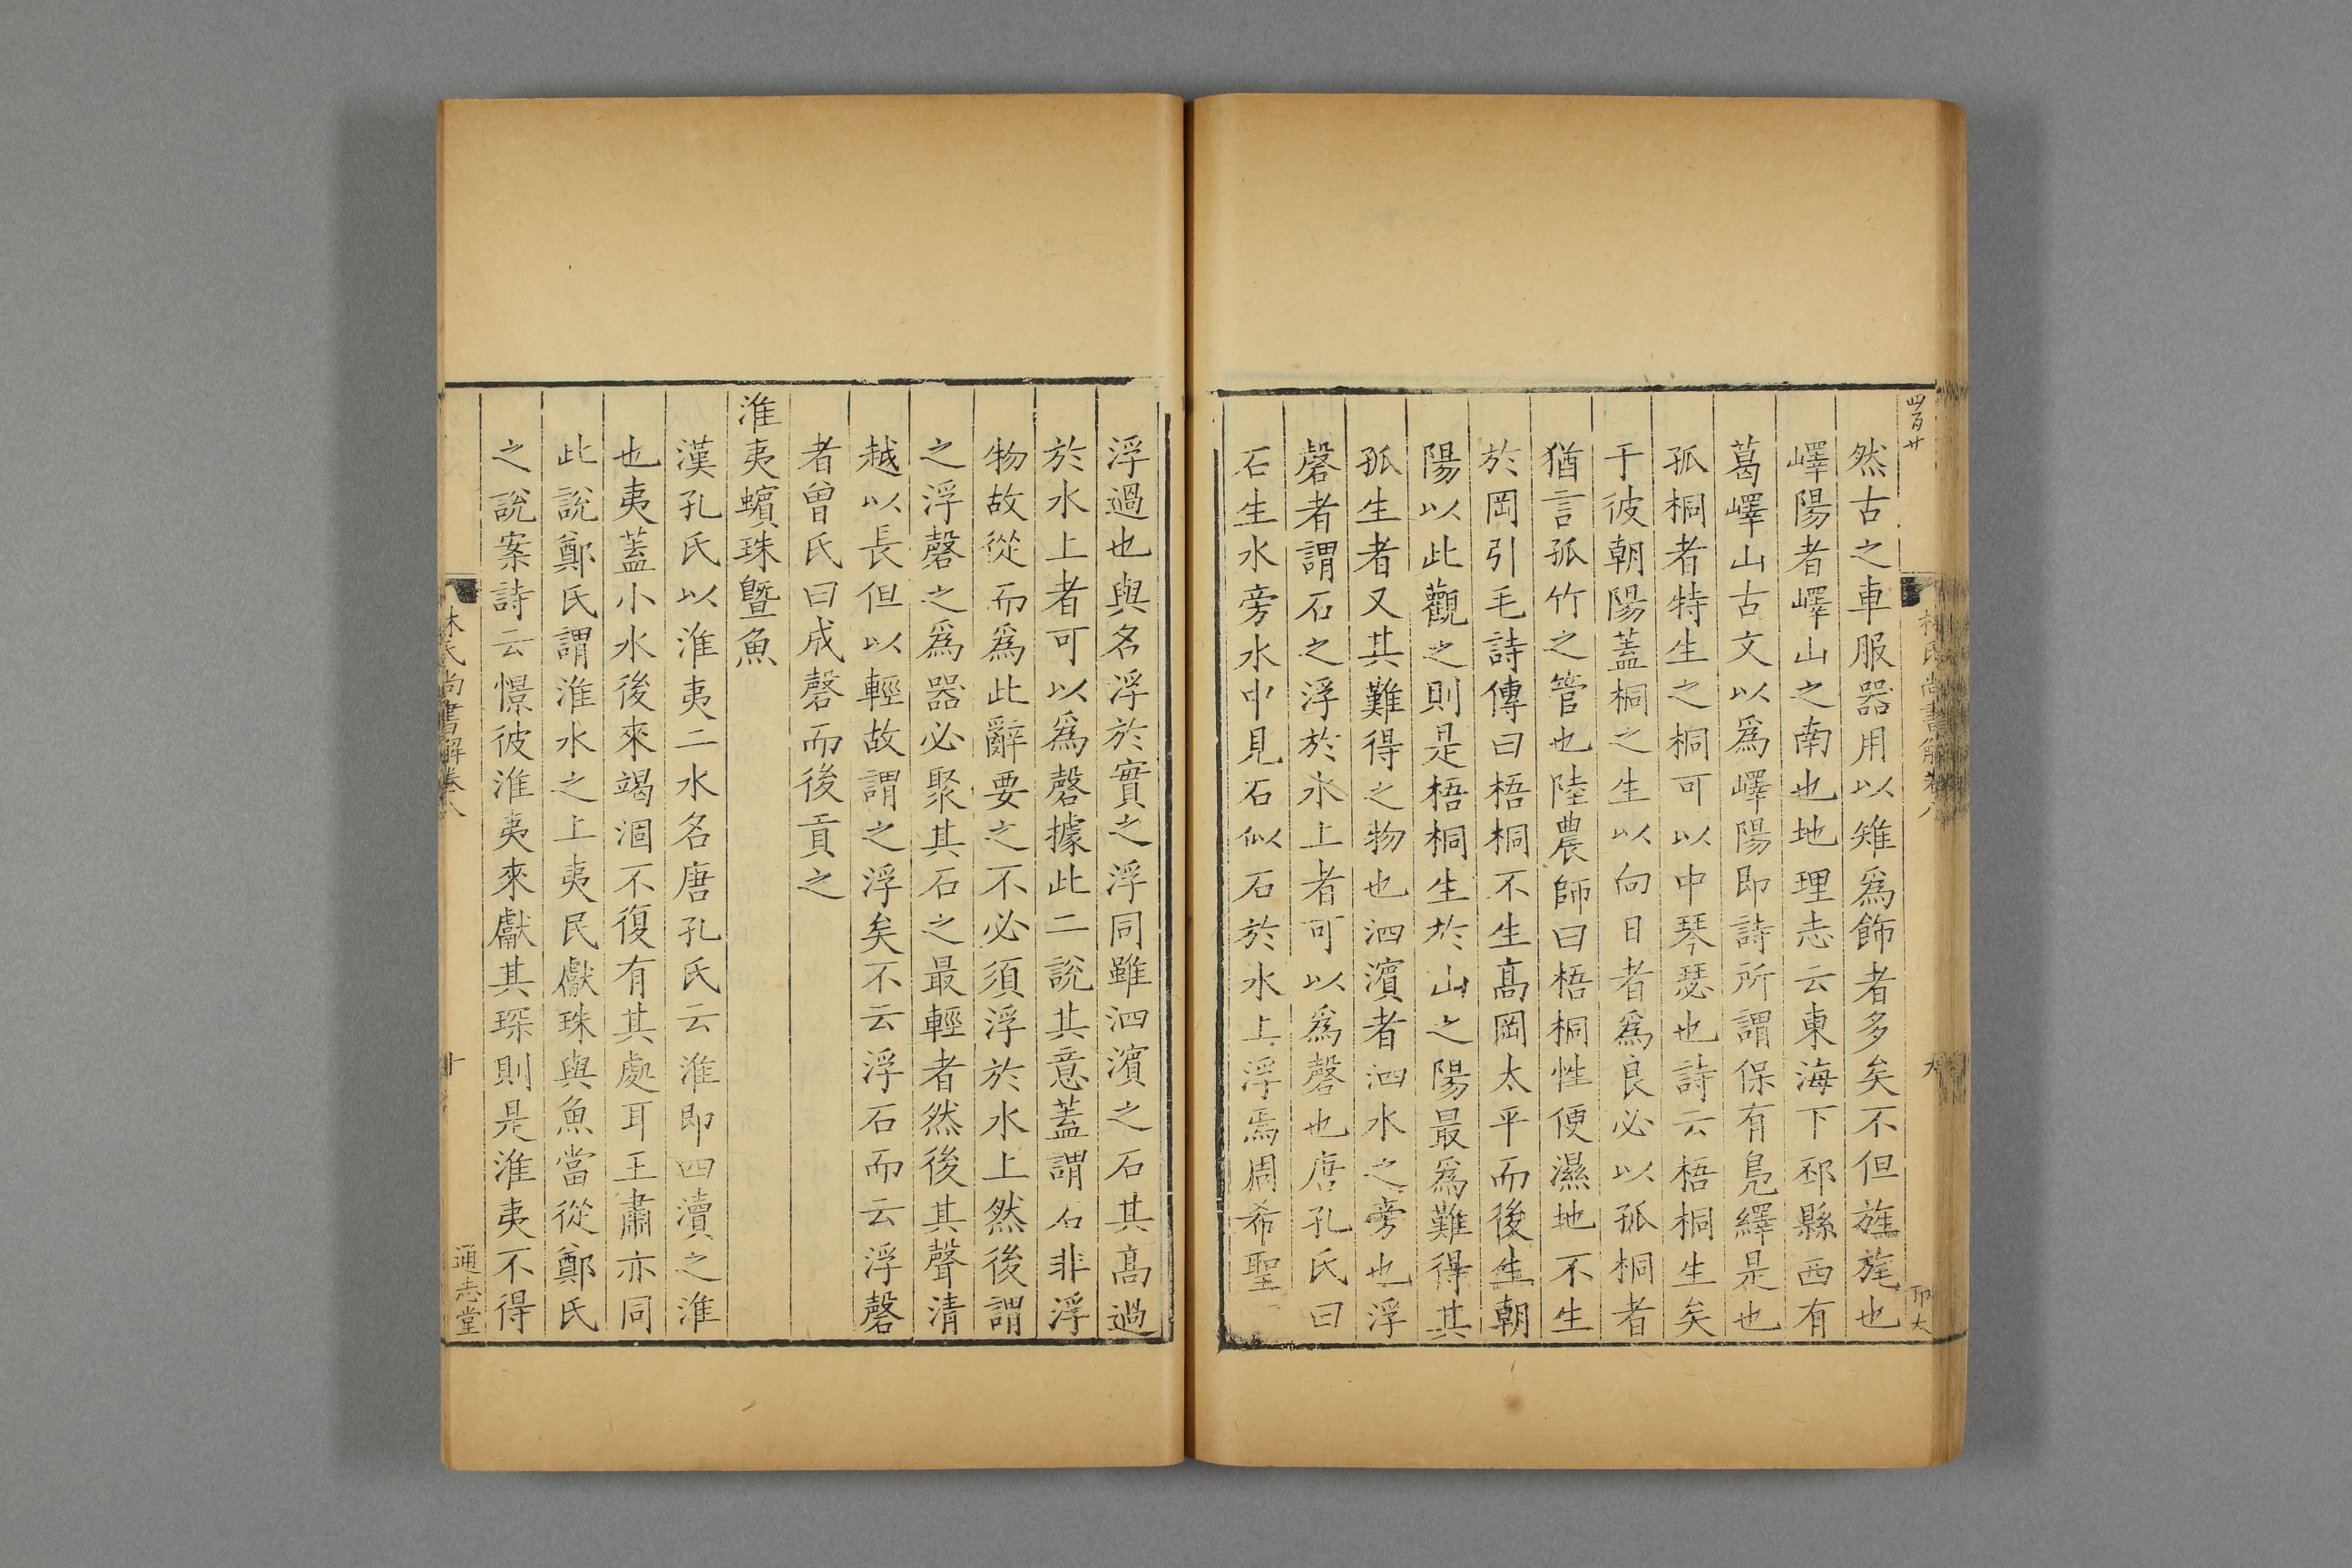 四百廿
林氏尚書解卷八
九
然古之車服器用以雉爲飾者多矣不但旌旄也
嶧陽者嶧山之南也地理志云東海下邳縣西有
葛嶧山古文以爲嶧陽即詩所謂保有鳧繹是也
孤桐者特生之桐可以中琴瑟也詩云梧桐生矣
于彼朝陽蓋桐之生以向日者爲良必以孤桐者
猶言孤竹之管也陸農師曰梧桐性便濕地不生
於岡引毛詩傳曰梧桐不生高岡太平而後生朝
陽以此觀之則是梧桐生於山之陽最爲難得其
孤生者又其難得之物也泗濱者泗水之旁也浮
磬者謂石之浮於水上者可以爲磬也唐孔氏曰
石生水旁水中見石似石於水上浮焉周希聖
浮過也與名浮於實之浮同雖泗濱之石其高過
於水上者可以爲磬據此二說其意蓋謂石非浮
物故從而爲此辭要之不必須浮於水上然後謂
之浮磬之爲器必聚其石之最輕者然後其聲清
越以長但以輕故謂之浮矣不云浮石而云浮磬
者曾氏曰成磬而後貢之
淮夷蠙珠曁魚
漢孔氏以淮夷二水名唐孔氏云淮即四瀆之淮
也夷蓋小水後來竭涸不復有其處耳王肅亦同
此說鄭氏謂淮水之上夷民獻珠與魚當從鄭氏
之說案詩云憬彼淮夷來獻其琛則是淮夷不得
林氏尚書解卷八
十
通志堂